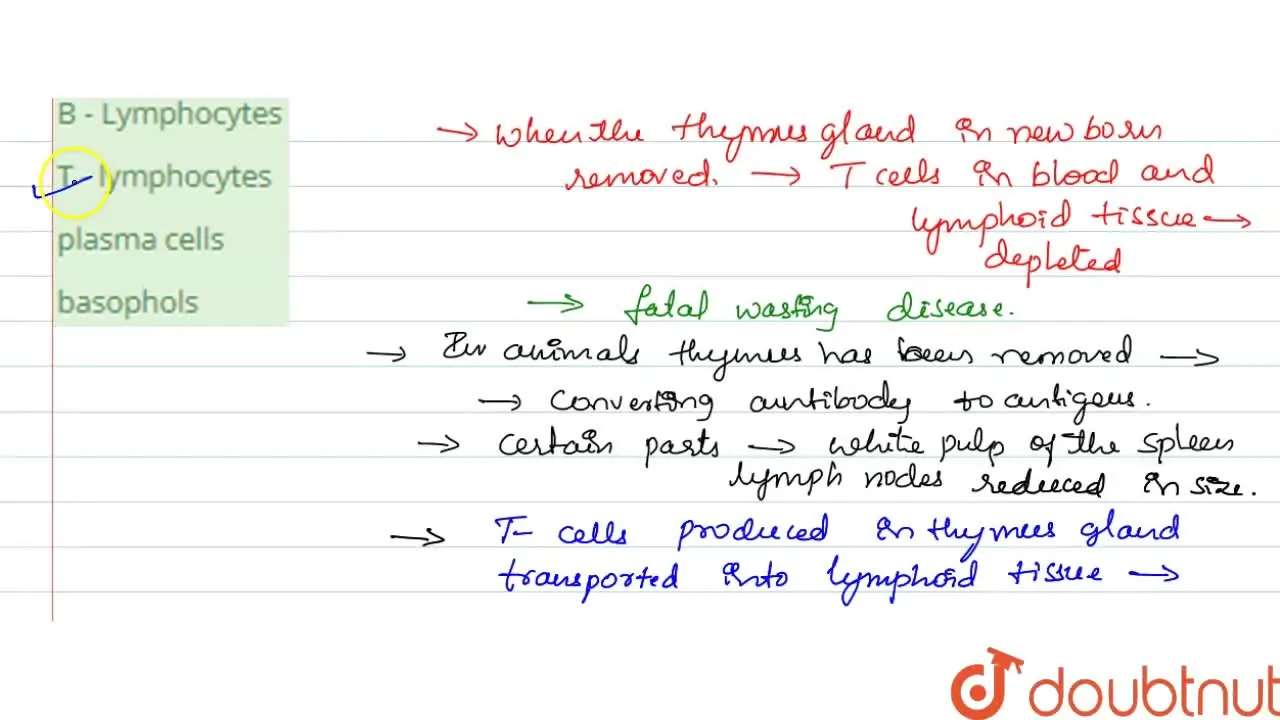 B - Lymphocytes
T - lymphocytes
plasma cells
basophols
→ when the thymus gland in new born
removed. → T cells in blood and
lymphoid tissue →
depleted
→ fatal wasting disease.
→ In animals thymus has been removed →
→ converting antibody to antigens.
→ certain parts → white pulp of the spleen
lymph nodes reduced in size.
→ T- cells produced in thymus gland
transported into lymphoid tissue →
doubtnut